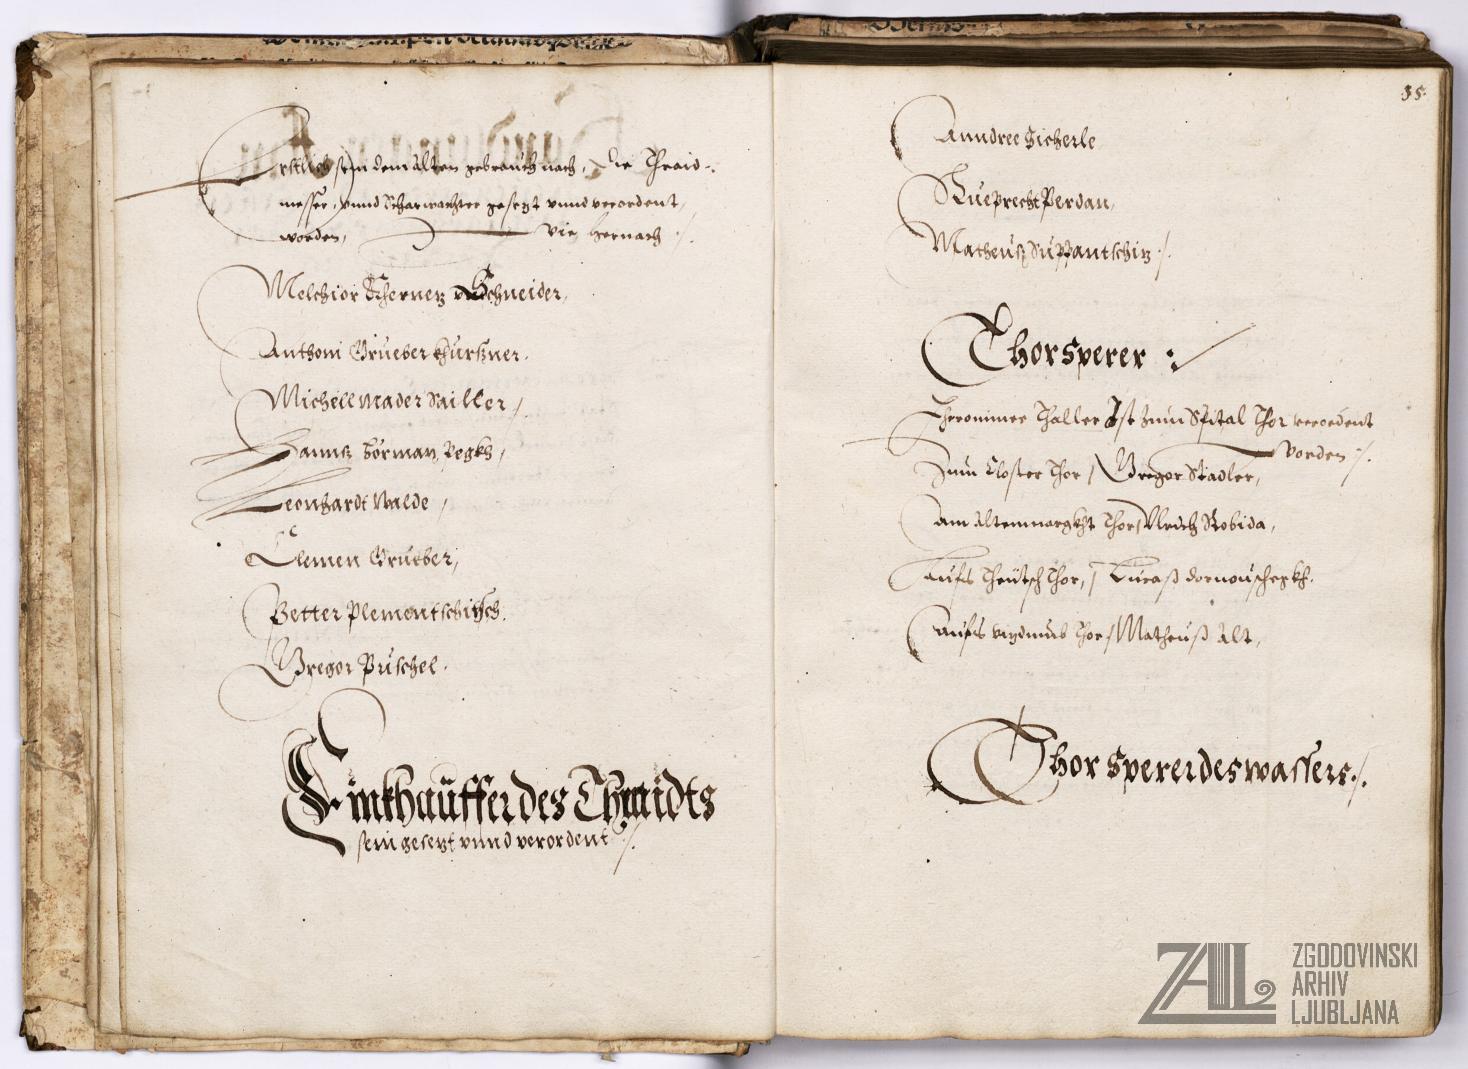 Erstlich sein dem alten gebrauch nach, die Thraid-
messer, vnnd Scharwachter gesetzt vnnd verordent,
worden, wie hernach
Melchior Schneider,
Anthoni Grueber Khürßner.
Michell Mader Sailler,
Hannß Pegkh,
Leonhardt Walde,
Clemen Grueber,
Petter Plementschitsch.
Gregor Püschel.
Einkhauffer des Thraidts
sein gesetzt vnnd verordent
35.
Anndree Sicherle
Rueprecht Perdan,
Matheuß Suppantschitz
Thorsperer
Iheronimee Thaller Ist zum Spital Thor verordent
worden
Zum Closter Thor, Gregor Stadler,
am altenmargkht Thor, Vlrich Robida,
aufs Theütsch Thor, Lucaß
aufs vizdomb Thor, Matheuß Alt,
Thorsperer des wassers
ZAL
ZGODOVINSKI
ARHIV
LJUBLJANA